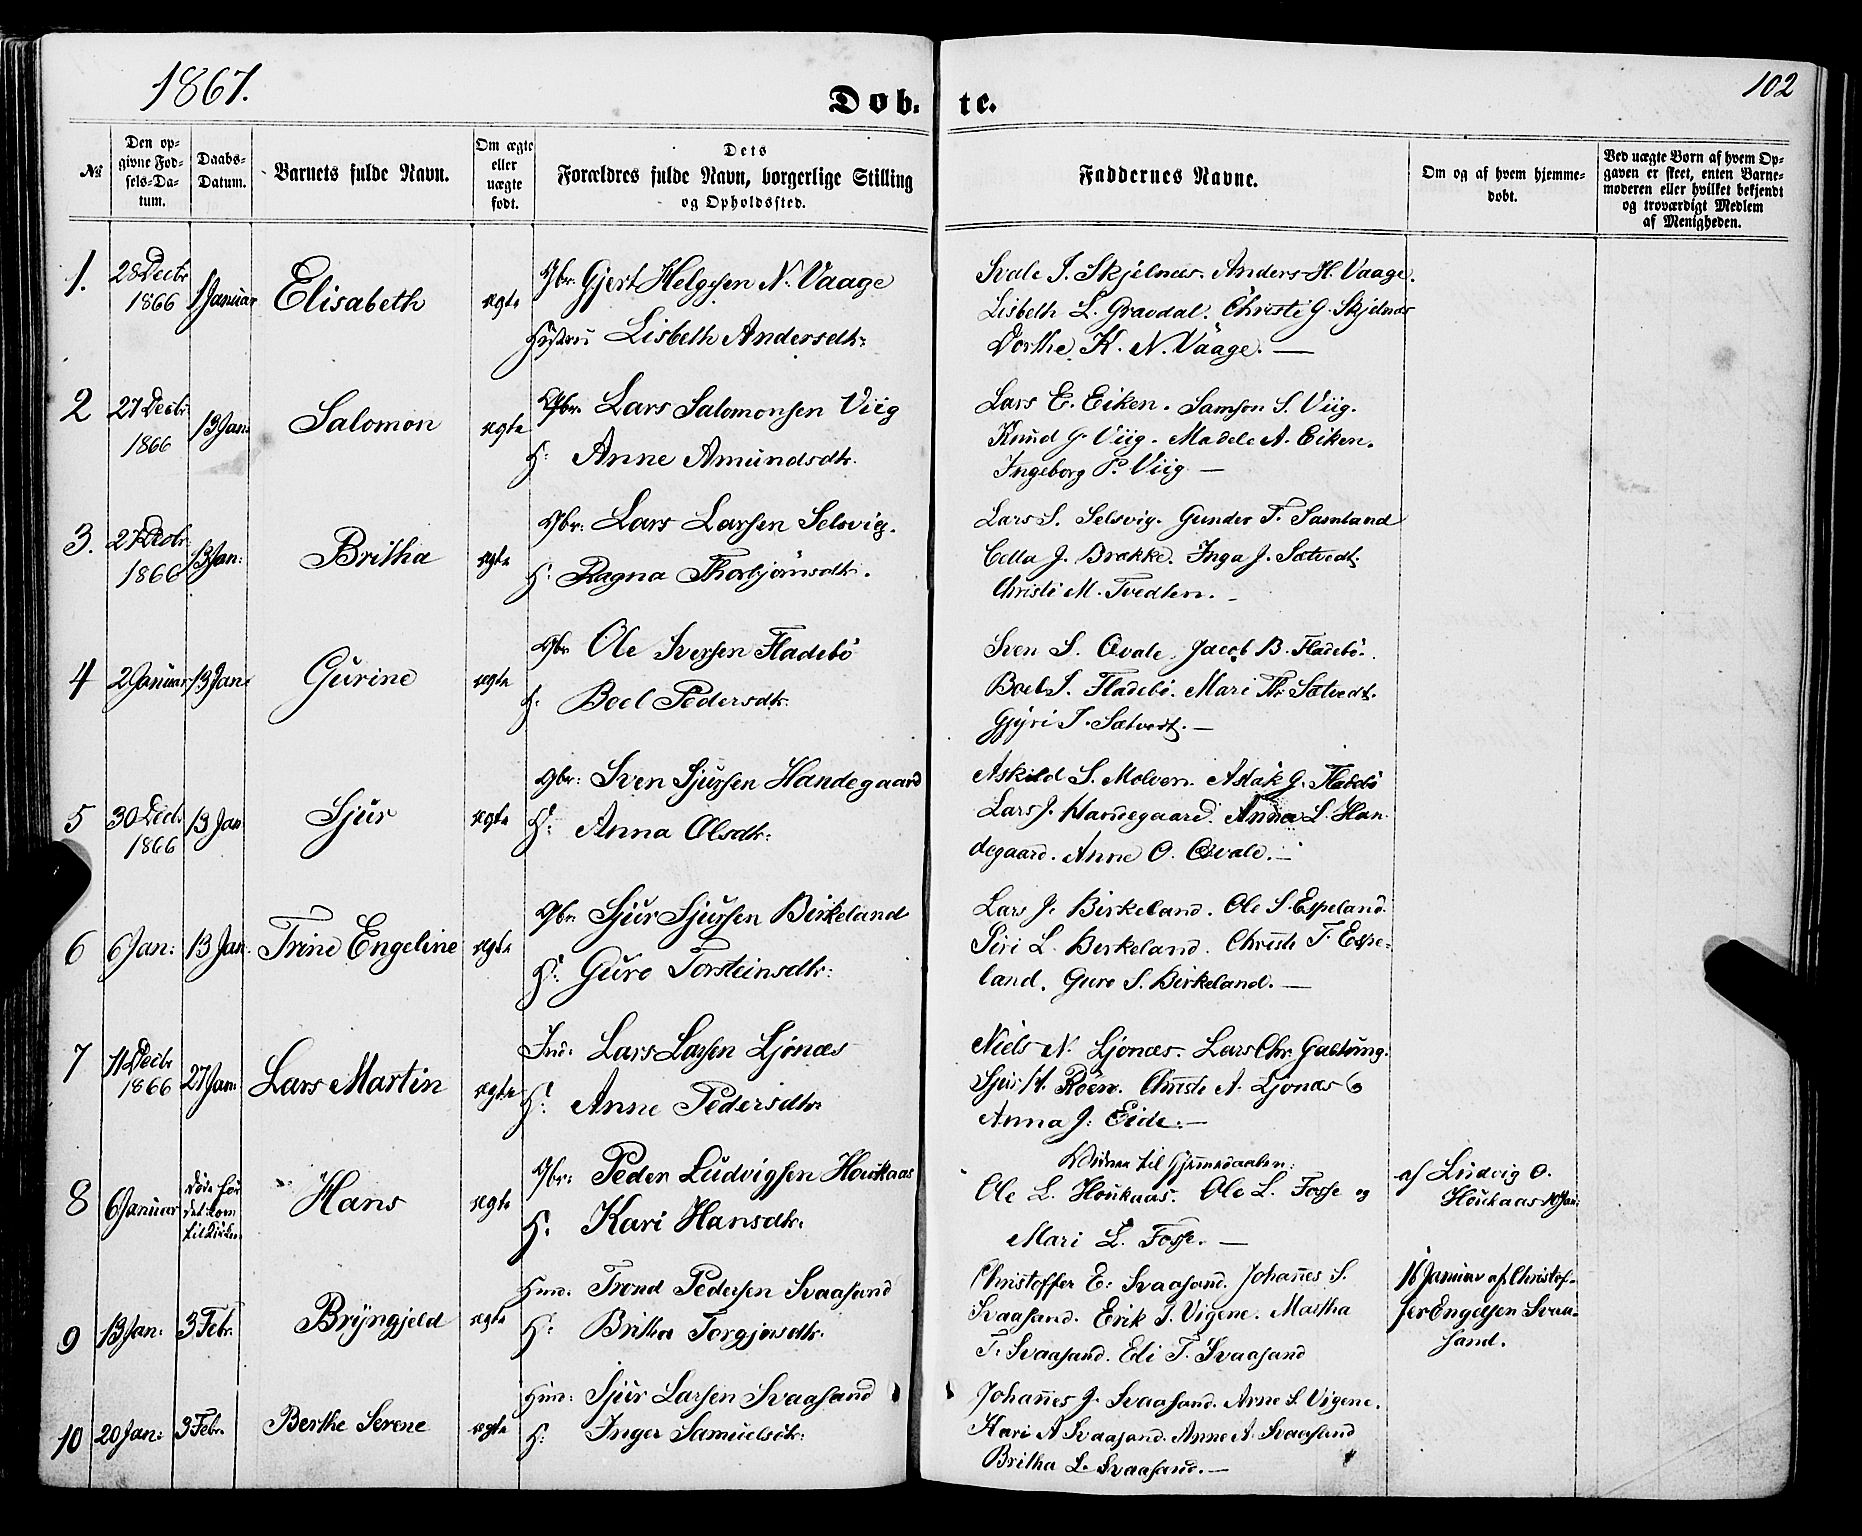 1867.
102
Døb. te.
№
Den op-
givne Fød-
sels-Da-
tum.
Daabs-
Datum.
Barnets fulde Navn.
Om ægte
eller
uægte
født.
Dets
Forældres fulde Navn, borgerlige Stilling
og Opholdssted.
Faddernes Navne.
Om og af hvem hjemme-
døbt.
Ved uægte Børn af hvem Op-
gaven er skeet, enten Barne-
moderen eller hvilket bekjendt
og troværdigt Medlem
af Menigheden.
1. 28 Decbr 1866 1 Januar Elisabeth ægte
Gbr. Gjert Helgesen N. Vaage
Hustru Lisbeth Andersdtr:
Svale J. Skjelnæs. Anders H. Vaage.
Lisbeth L. Gravdal. Christi G. Skjelnæs
Dorthe K. N. Vaage. —
2 27 Decbr 1866 13 Jan: Salomon ægte
Gbr. Lars Salomonsen Viig
H: Anne Amundsdtr.
Lars E. Eiken. Samson S. Viig.
Knud G. Viig. Madele A. Eiken.
Ingeborg P. Viig. —
3. 27 Decbr 1866 13 Jan: Britha ægte
Gbr: Lars Larsen Selsvig.
H: Ragna Thorbjørnsdtr.
Lars S. Selsvig. Gunder T. Samland
Cella J. Brække. Inga J. Sætvedt.
Christi M. Tvedten. —
4 2 Januar 13 Jan: Gurine ægte
Gbr Ole Iversen Fladebö
H. Boel Pedersdtr.
Sven S. Qvale. Jacob B. Fladebö.
Boel I. Fladebö. Mari Th. Sætvedt.
Gjyri T. Sætvedt. —
5 30 Decb. 1866 13 Jan Sjur ægte
Gbr: Sven Sjursen Handegaard
H: Anna Olsdtr:
Askild S. Molven. Aslak G. Fladebö
Lars J. Handegaard. Anna L. Han-
degaard. Anne O. Qvale. —
6 6 Jan: 13 Jan. Trine Engeline ægte
Gbr. Sjur Sjursen Birkeland
H: Guro Torsteinsdtr:
Lars J. Birkeland. Ole S. Espeland.
Siri L. Birkeland. Christi T. Espe-
land. Guro S. Birkeland. —
7 11 Decbr 1866 27 Jan: Lars Martin ægte
Ind: Lars Larsen Ljönæs
H: Anne Pedersdtr:
Niels N. Ljönæs. Lars Chr. Galtung.
Sjur H. Röen. Christi A. Ljönæs
Anna J. Eide. —
8 6 Januar Döde för
det kom
til Kirken
Hans ægte
Gbr: Peder Ludvigsen Houkaas
H: Kari Hansdtr:
Vidner til Hjemmedaaben:
Ole L. Houkaas. Ole L. Fosse og
Mari L. Fosse. —
af Ludvig O.
Houkaas 10 Jan:
9 13 Jan: 3 Febr. Bryngjeld ægte
Huus: Trond Pedersen Svaasand
H: Britha Torgjusdtr:
Christoffer E. Svaasand. Johannes S.
Svaasand. Erik I. Vigene. Martha
T. Svaasand. Eli T. Svaasand
16 Januar af Christof-
fer Engelsen Svaa-
sand.
10 20 Jan: 3 Febr. Berthe Serene ægte
Huus: Sjur Larsen Svaasand
H: Inger Samuelsdtr:
Johannes J. Svaasand. Anne S. Vigene.
Kari A Svaasand. Anne A. Svaasand
Britha L. Svaasand. —